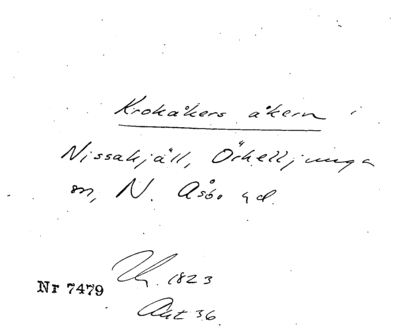 Krokåkers åkern i
Nissakjäll, Örkelljunga
sn, N. Åsbo hd.
Nr 7479
1823
Akt 36.